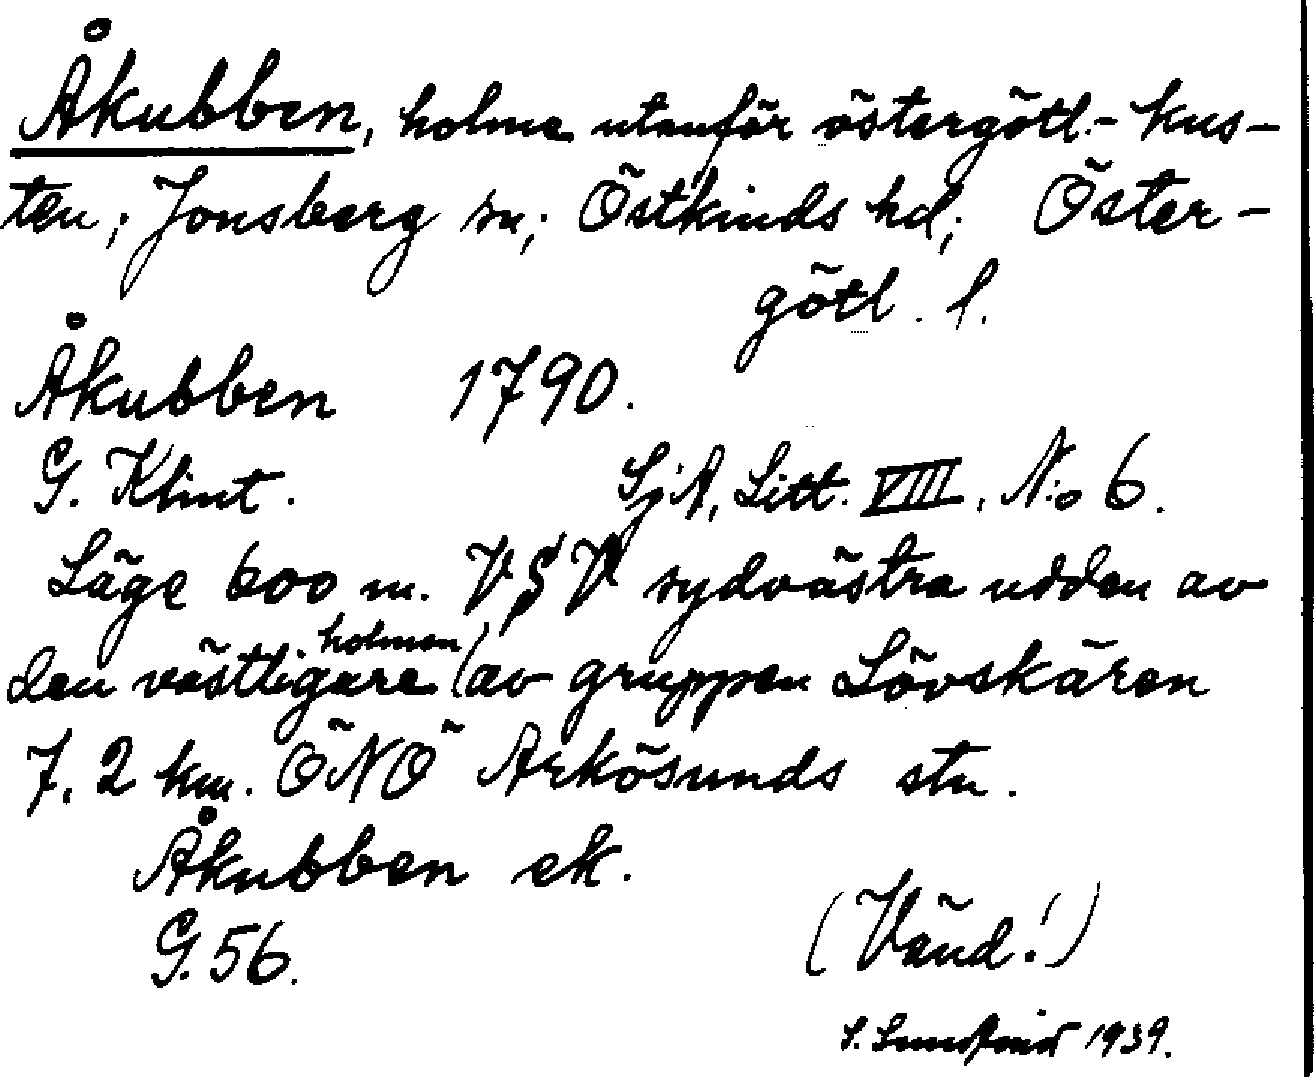 Åkubben, holme utanför östergötl.- kus-
ten; Jonsberg sn; Östkinds hd; Öster-
götl. l.
Åkubben 1790.
G. Klint. SjA, Litt. VIII, N:o 6.
Läge 600 m. VSV sydvästra udden av
den västligare holmen (av gruppen Lövskären
7,2 km. ÖNÖ Arkösunds stn.
Åkubben ek.
G. 56.
(Vänd!)
1939.